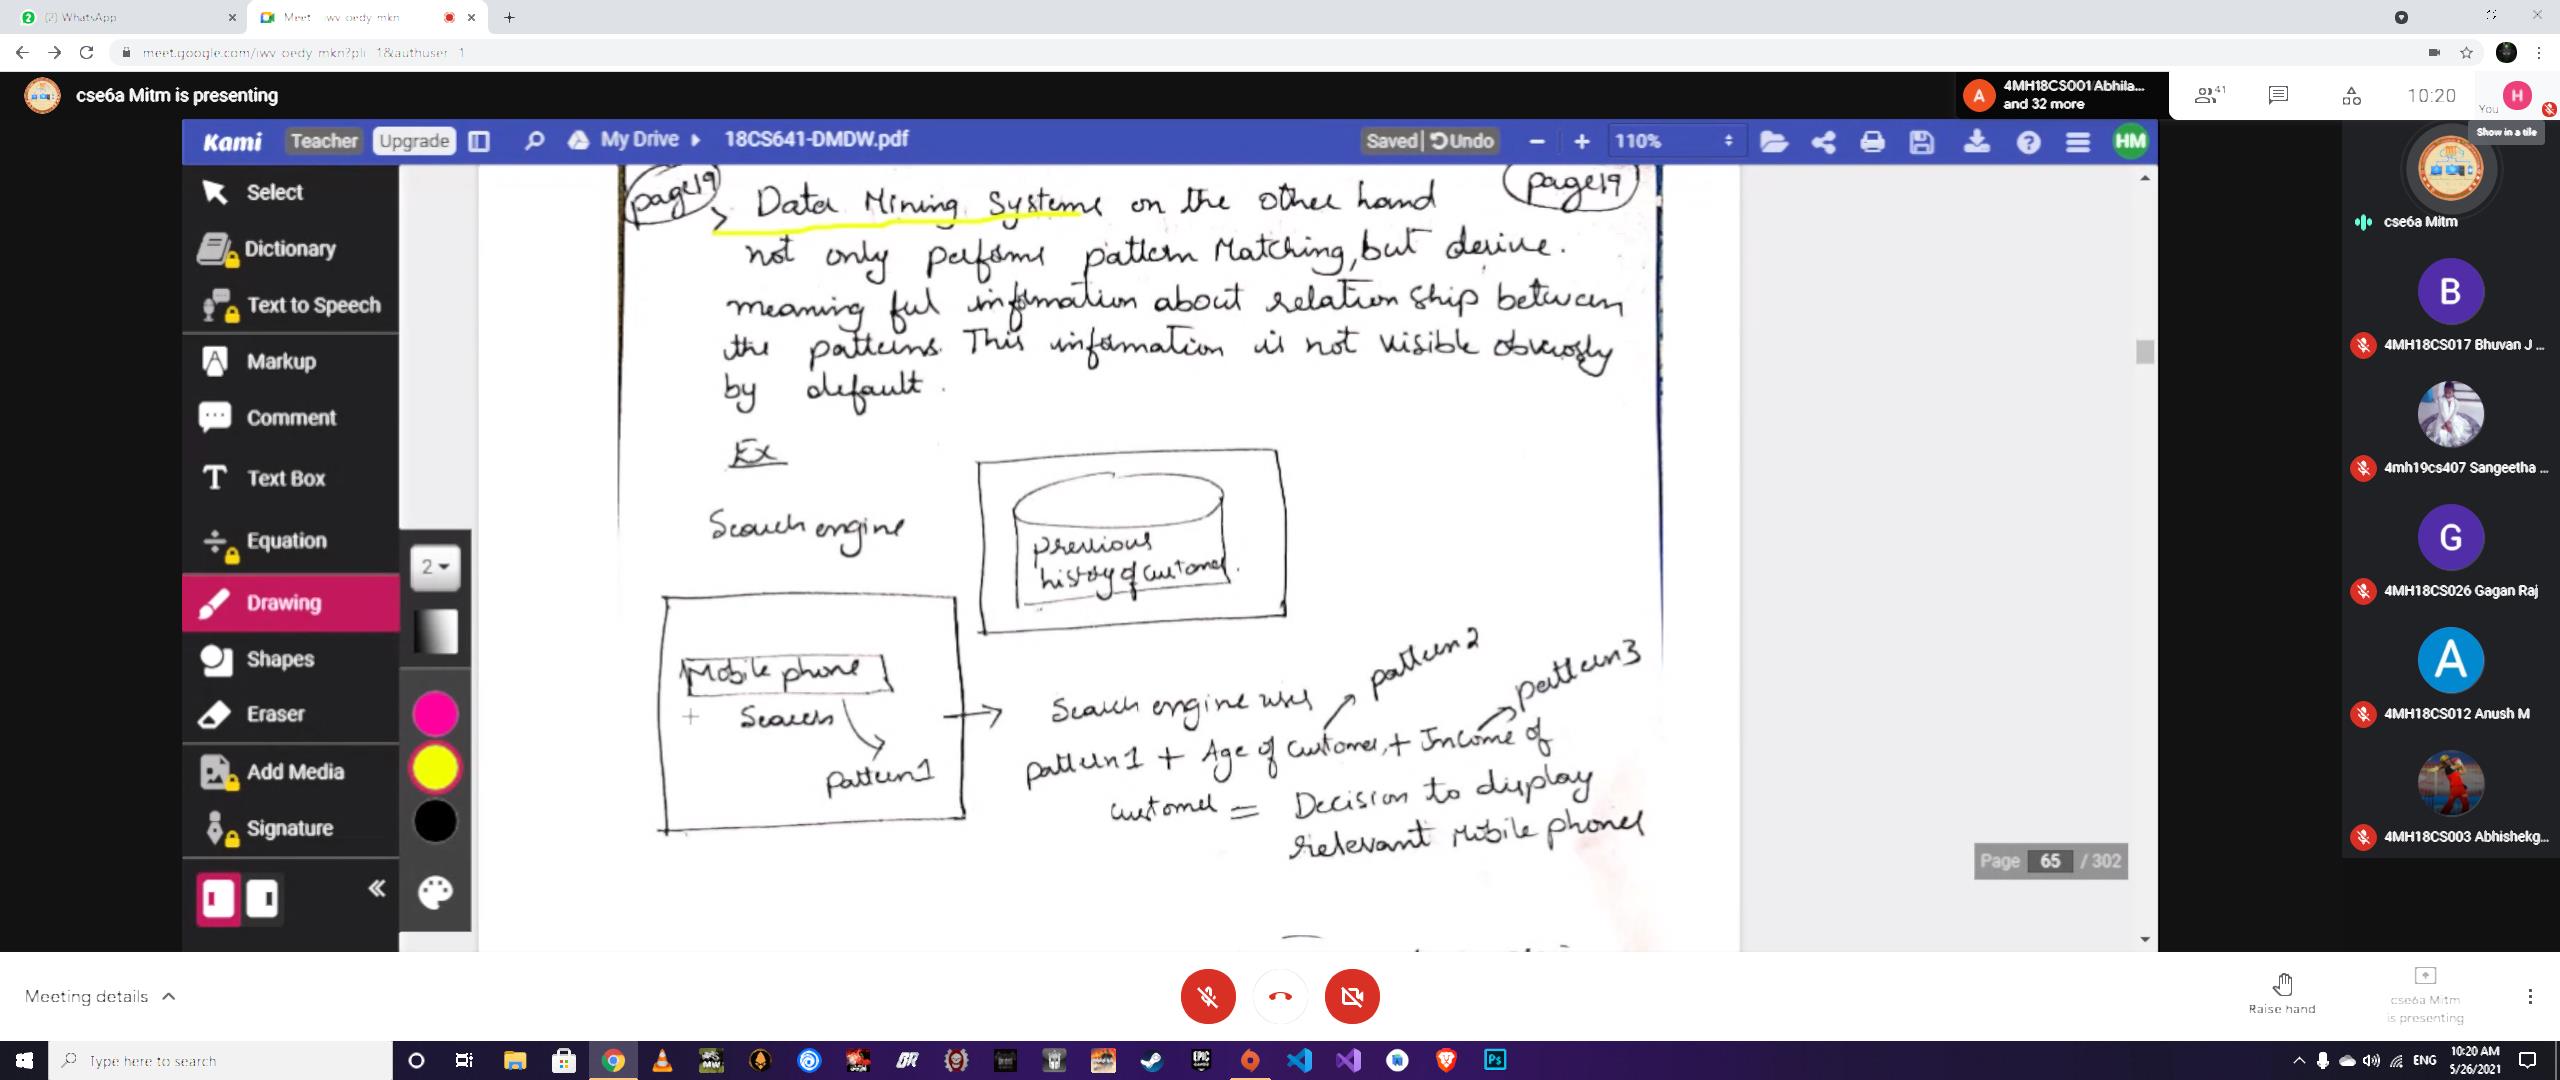 (2) WhatsApp
Meet
meet.google.com/iwv oedy mkn?pli 1&authuser 1
cse6a Mitm is presenting
A
4MH18CS001 Abhila...
and 32 more
41
10:20
You
H
Show in a tile
Kami
Teacher
Upgrade
My Drive
18CS641-DMDW.pdf
Saved
Undo
110%
HM
Select
Dictionary
Text to Speech
Markup
Comment
Text Box
Equation
Drawing
Shapes
Eraser
Add Media
Signature
2
page19
page19
> Data Mining Systems on the other hand
not only performs pattern Matching, but derive.
meaning ful information about relation ship between
the patterns. This information is not visible
by default.
Ex
Search engine
previous
history of customer.
Mobile phone
Search
pattern1
pattern2
pattern3
Search engine uses
pattern1 + Age of customer, + Income of
customer = Decision to display
relevant Mobile phones
Page 65 / 302
cse6a Mitm
B
4MH18CS017 Bhuvan J ...
4mh19cs407 Sangeetha ...
G
4MH18CS026 Gagan Raj
A
4MH18CS012 Anush M
4MH18CS003 Abhishekg...
Meeting details
Raise hand
cse6a Mitm
is presenting
Type here to search
MW
BR
EPIC
GAMES
Ps
ENG
10:20 AM
5/26/2021